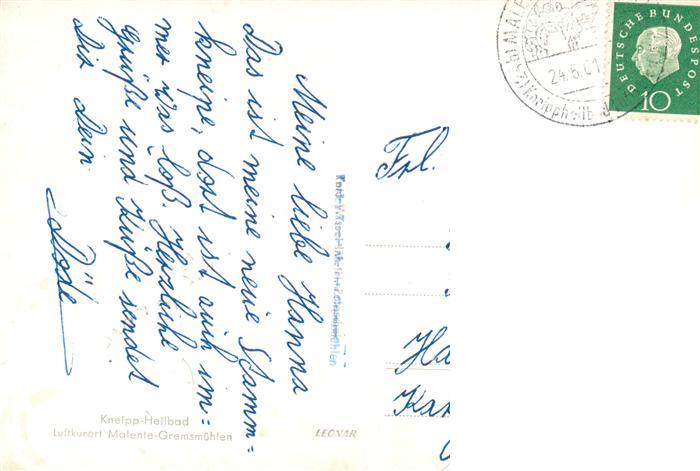 Meine liebe Hanna
Das ist meine neue Stamm=
kneipe, dort ist auch im=
mer was loß. Herzliche
Grüße und Küße sendet
Dir Dein
Frl.
Ha
Kneipp-Heilbad
Luftkurort Malente-Gremsmühlen
LEONAR
24.6.61
Kneippheilbad
DEUTSCHE BUNDESPOST
10